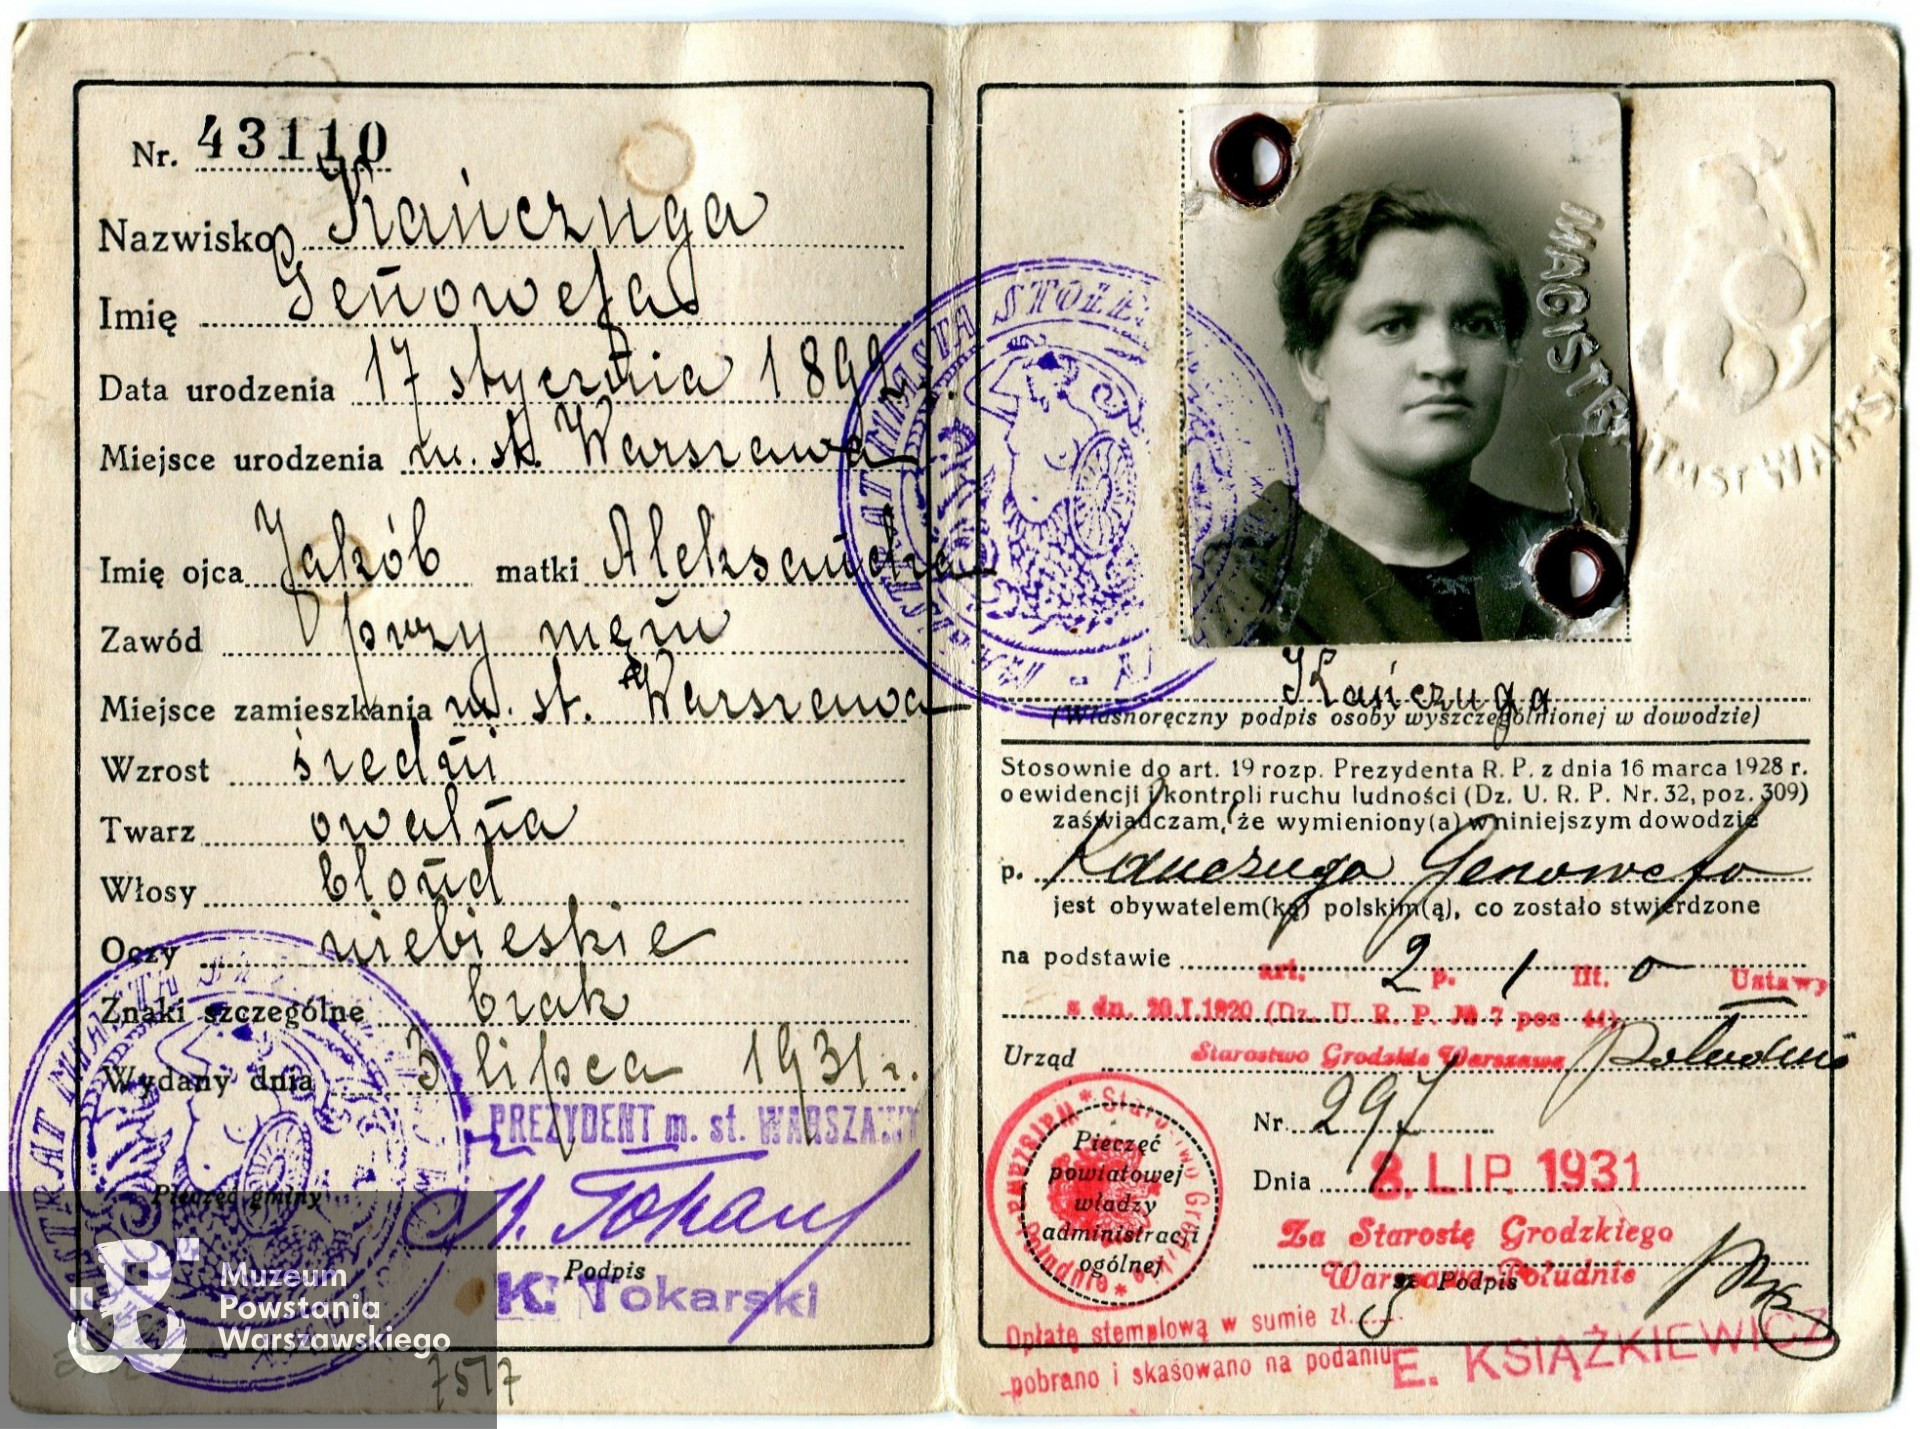 Nr. 43110
Nazwisko Kańczuga
Imię Genowefa
Data urodzenia 17 stycznia 1892 r.
Miejsce urodzenia m. st. Warszawa
Imię ojca Jakób matki Aleksandra
Zawód przy mężu
Miejsce zamieszkania m. st. Warszawa
Wzrost średni
Twarz owalna
Włosy blond
Oczy niebieskie
Znaki szczególne brak
Wydany dnia 3 lipca 1931 r.
PREZYDENT m. st. WARSZAWY
Pieczęć gminy
K. Tokarski
Podpis
K. Tokarski
Muzeum
Powstania
Warszawskiego
7517
MAGISTRAT MIASTA STOŁE
MAGISTRAT MIAST WARS
Kańczuga
(Własnoręczny podpis osoby wyszczególnionej w dowodzie)
Stosownie do art. 19 rozp. Prezydenta R. P. z dnia 16 marca 1928 r.
o ewidencji i kontroli ruchu ludności (Dz. U. R. P. Nr. 32, poz. 309)
zaświadczam, że wymieniony(a) w niniejszym dowodzie
p. Kańczuga Genowefa
jest obywatelem(ką) polskim(ą), co zostało stwierdzone
na podstawie art. 2 p. 1 lit. o Ustawy
z dn. 20.I.1920 (Dz. U. R. P. № 7 poz 44).
Urząd Starostwo Grodzkie Warszawa Południe
Nr. 297
Dnia 8. LIP. 1931
Pieczęć
powiatowej
władzy
administracji
ogólnej
Za Starostę Grodzkiego
Warszawa-Południe
Podpis
Opłatę stemplową w sumie zł.
pobrano i skasowano na podaniu
E. KSIĄŻKIEWICZ